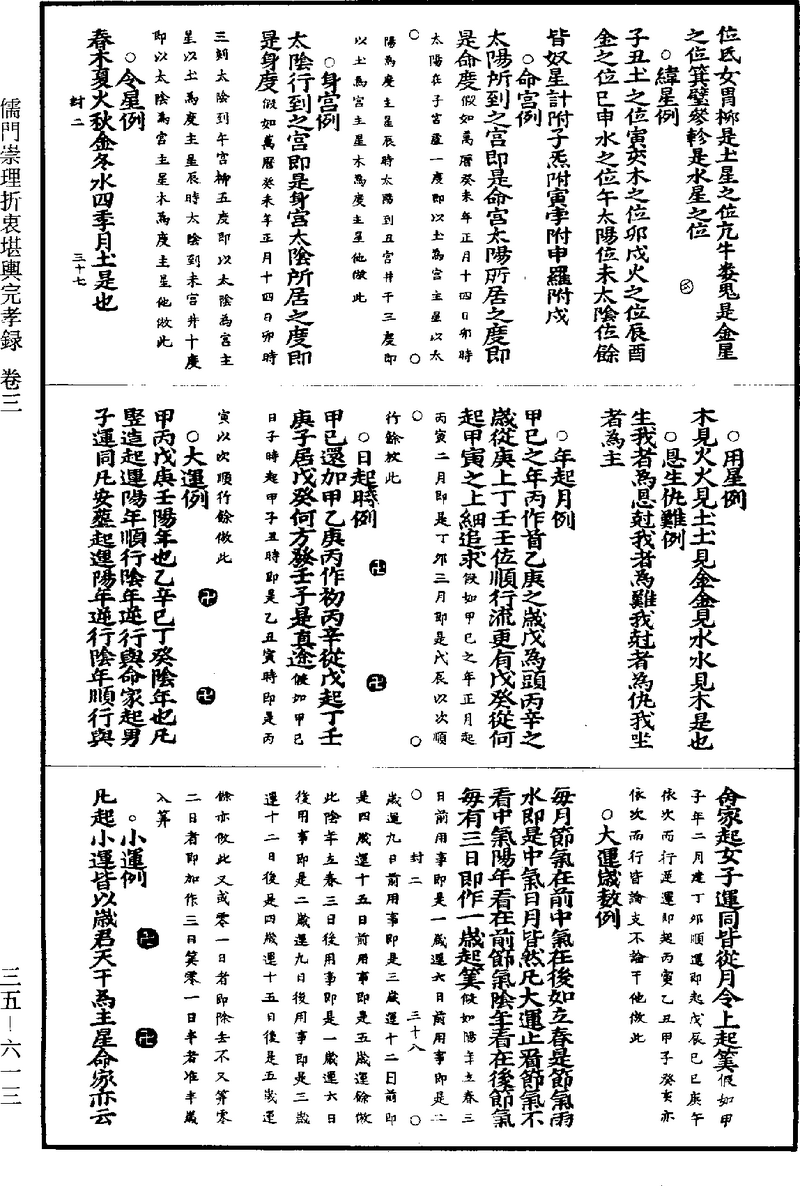 位氐女胃柳是土星之位亢牛娄鬼是金星
之位箕壁參軫是水星之位
○緯星例
子丑土之位寅亥木之位卯戌火之位辰酉
金之位巳申水之位午太陽位未太陰位餘
皆奴星計附子炁附寅孛附申羅附戌
○命宮例
太陽所到之宮即是命宮太陽所居之度即
是命度假如萬曆癸未年正月十四日卯時
太陽在子宮虛一度即以土為宮主星以太
陽為度主星辰時太陽到丑宮井干三度即
以土為宮主星木為度主星他倣此
○身宮例
太陰行到之宮即是身宮太陰所居之度即
是身度假如萬曆癸未年正月十四日卯時
三刻太陰到午宮柳五度即以太陰為宮主
星以土為度主星辰時太陰到未宮井十度
即以太陰為宮主星木為度主星他倣此
○令星例
春木夏火秋金冬水四季月土是也
封二
三十七
○用星例
木見火火見土土見金金見水水見木是也
○恩生仇難例
生我者為恩尅我者為難我尅者為仇我生
者為主
○年起月例
甲己之年丙作首乙庚之歲戊為頭丙辛之
歲從庚上丁壬壬位順行流更有戊癸從何
起甲寅之上細追求假如甲己之年正月起
丙寅二月即是丁卯三月即是戊辰以次順
行餘放此
○日起時例
甲己還加甲乙庚丙作初丙辛從戊起丁壬
庚子居戊癸何方發壬子是真途假如甲己
日子時起甲子丑時即是乙丑寅時即是丙
寅以次順行餘倣此
○大運例
甲丙戊庚壬陽年也乙辛己丁癸陰年也凡
竪造起運陽年順行陰年逆行與命家起男
子運同凡安葬起運陽年逆行陰年順行與
命家起女子運同皆從月令上起筭假如甲
子年二月建丁卯順運即起戊辰己巳庚午
依次而行逆運即起丙寅乙丑甲子癸亥亦
依次而行皆論支不論干他倣此
○大運歲數例
每月節氣在前中氣在後如立春是節氣雨
水即是中氣日月皆然凡大運止看節氣不
看中氣陽年看在前節氣陰年看在後節氣
每有三日即作一歲起筭假如陽年立春三
日前用事即是一歲運六日前用事即是二
封二
三十八
歲運九日前用事即是三歲運十二日前即
是四歲運十五日前用事即是五歲運餘倣
此陰年立春三日後用事即是一歲運六日
後用事即是二歲運九日後用事即是三歲
運十二日後是四歲運十五日後是五歲運
餘亦倣此又或零一日者即除去不又筭零
二日者即加作三日筭零一日半者准半歲
入筭
○小運例
凡起小運皆以歲君天干為主星命家亦云
儒門崇理折衷堪輿完孝録 卷三
三五－六一三